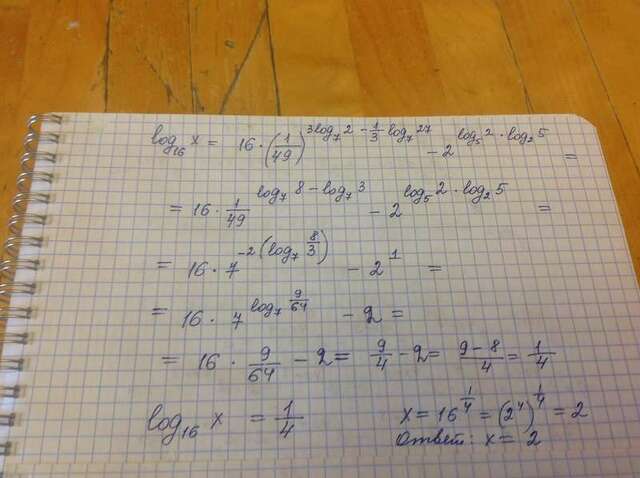 log₁₆ x = 16 · (1/49)^(3log₇2 − 1/3 log₇27) − 2^(log₅2 · log₂5) =
= 16 · 1/49^(log₇8 − log₇3) − 2^(log₅2 · log₂5) =
= 16 · 7^(−2(log₇ 8/3)) − 2^1 =
= 16 · 7^(log₇ 9/64) − 2 =
= 16 · 9/64 − 2 = 9/4 − 2 = 9−8/4 = 1/4
log₁₆ x = 1/4 x = 16^(1/4) = (2^4)^(1/4) = 2
Ответ: x = 2